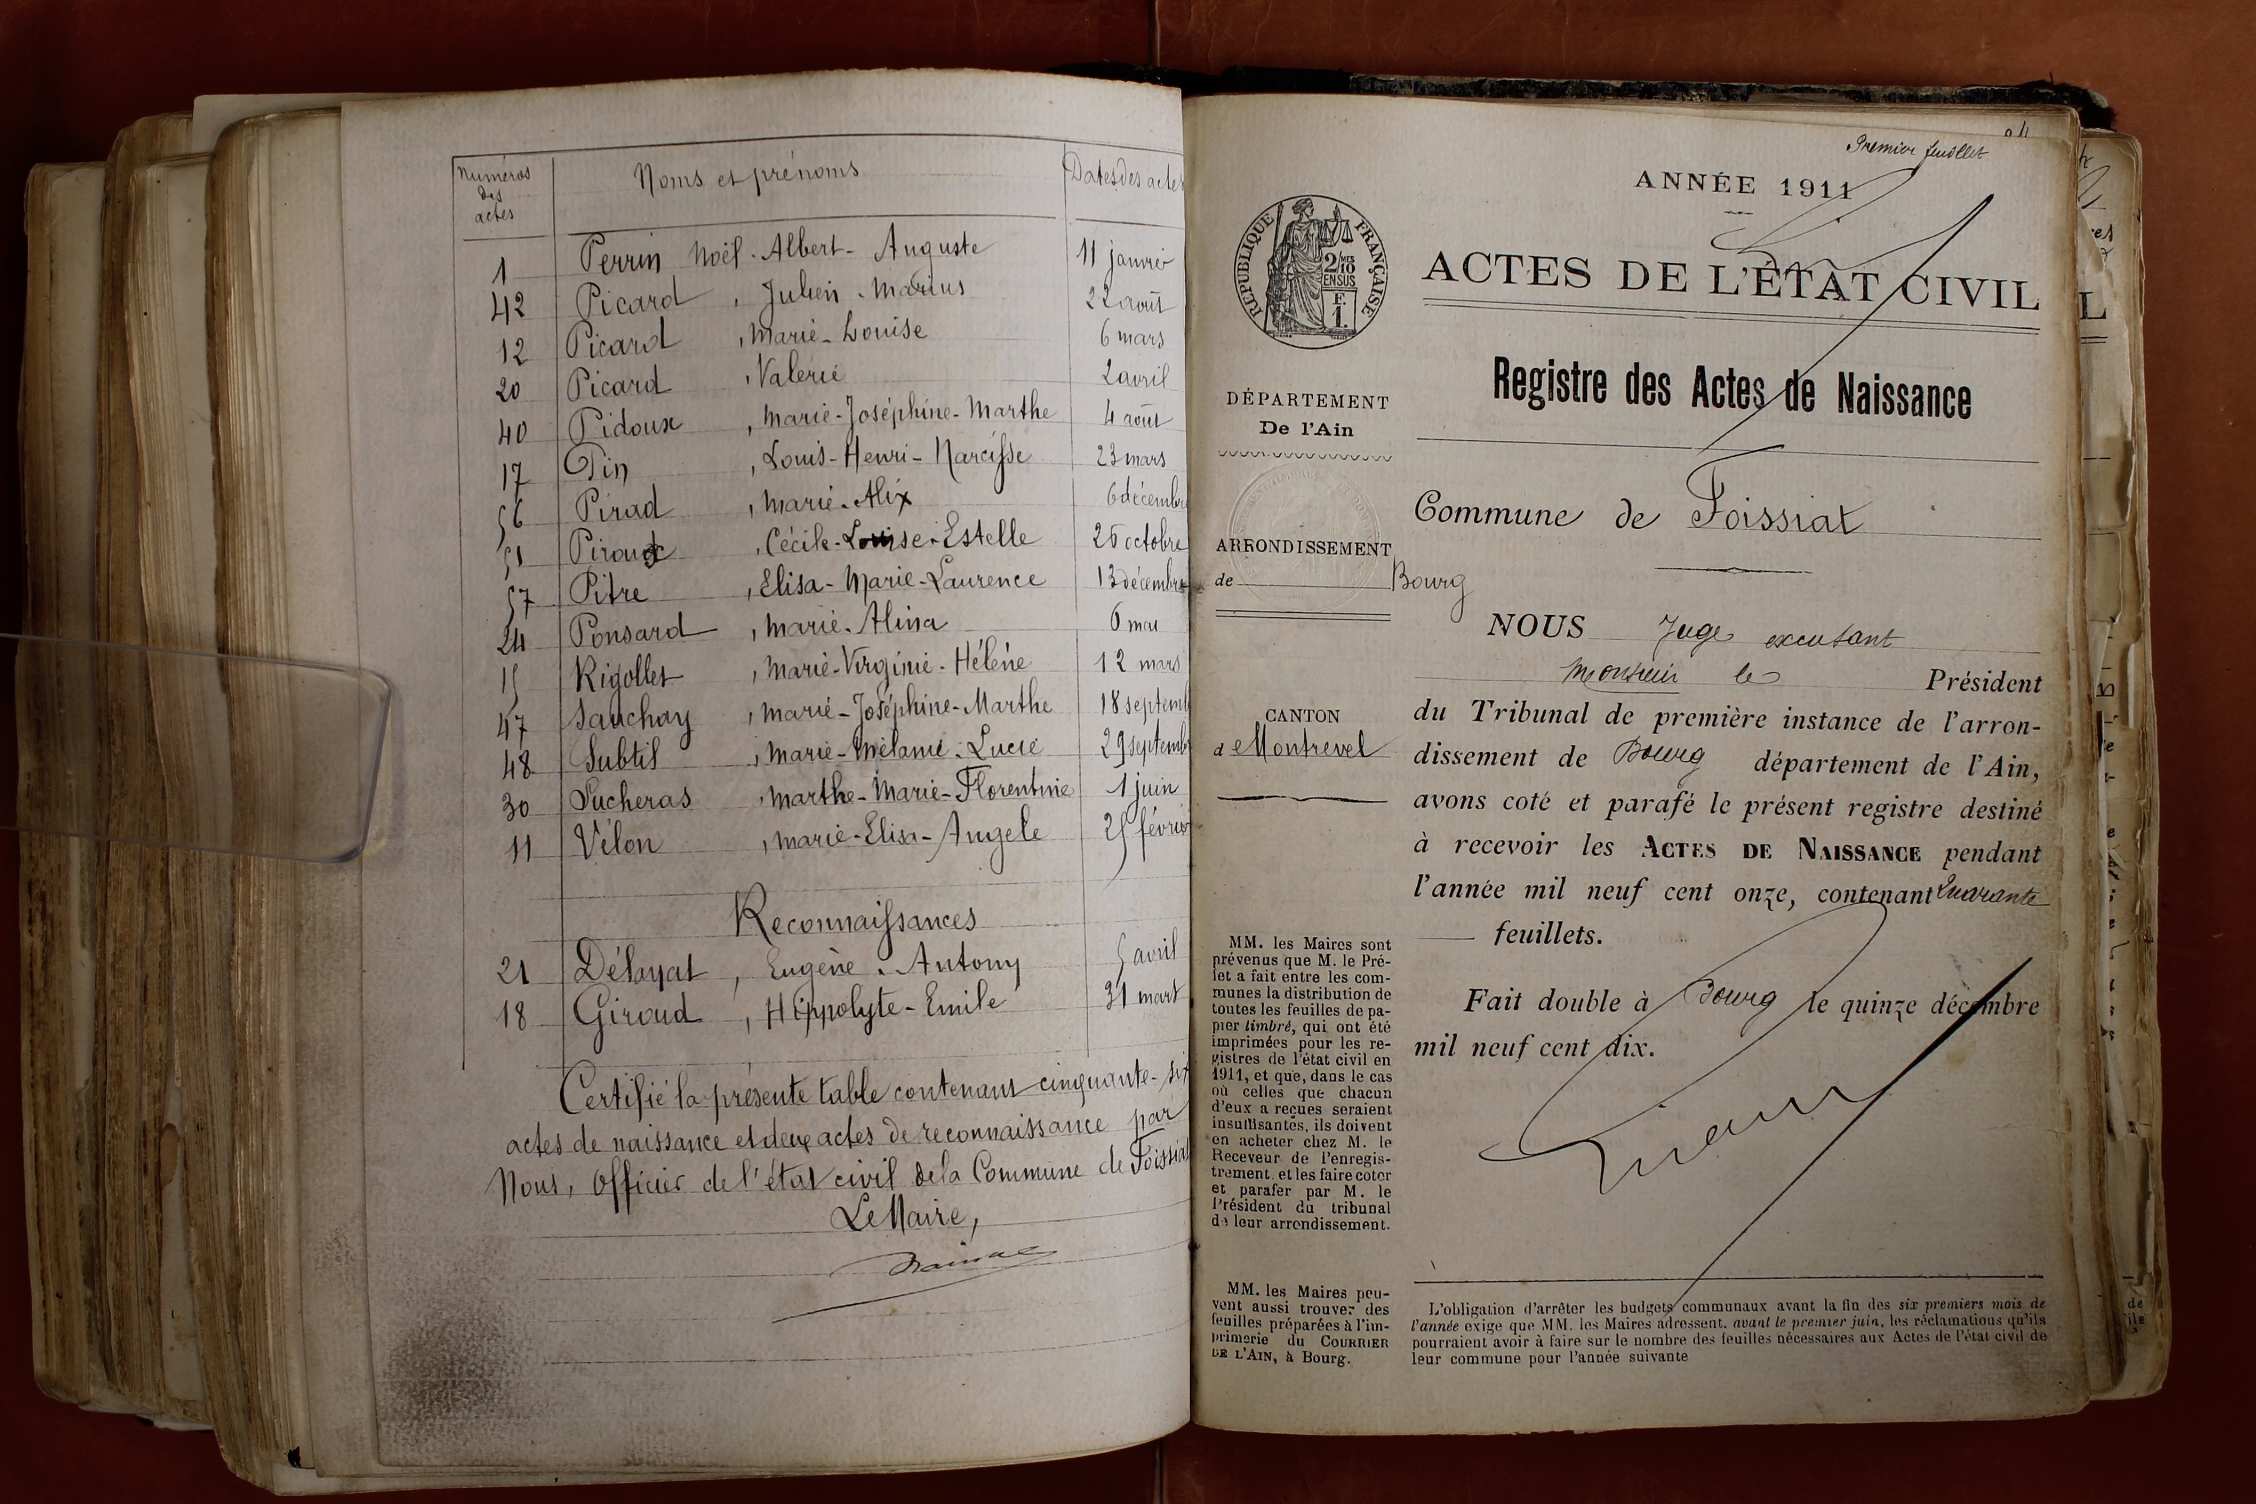 Numéros des actes Noms et prénoms Dates des actes
1 Perrin Noël-Albert-Auguste 11 janvier
42 Picard, Julien-Marius 22 août
12 Picard, Marie-Louise 6 mars
20 Picard, Valérie 2 avril
40 Pidoux, Marie-Joséphine-Marthe 4 août
17 Pin, Louis-Henri-Narcisse 23 mars
56 Pirad, Marie-Alix 6 décembre
51 Piroux, Cécile-Louise-Estelle 26 octobre
57 Pitre, Elisa-Marie-Laurence 13 décembre
24 Ponsard, Marie-Alina 6 mai
15 Rigollet, Marie-Virginie-Hélène 12 mars
47 Sauchay, Marie-Joséphine-Marthe 18 septemb
48 Subtil, Marie-Mélanie-Lucie 29 septemb
30 Sucheras, Marthe-Marie-Florentine 1 juin
11 Vélon, Marie-Elisa-Angele 25 février
Reconnaissances
21 Délayat, Eugène-Antony 5 avril
18 Giroud, Hippolyte-Emile 31 mars
Certifié la présente table contenant cinquante-six
actes de naissance et deux actes de reconnaissance par
Nous, Officier de l'état civil de la Commune de Foissiat
Le Maire,
Premier feuillet
ANNÉE 1911
RÉPUBLIQUE FRANÇAISE
2/10MES
EN SUS
F.
1.
ACTES DE L'ÉTAT CIVIL
Registre des Actes de Naissance
DÉPARTEMENT
De l'Ain
Commune de Foissiat
ARRONDISSEMENT
de Bourg
CANTON
de Montrevel
NOUS Juge excusant
Monsieur le Président
du Tribunal de première instance de l'arron-
dissement de Bourg département de l'Ain,
avons coté et parafé le présent registre destiné
à recevoir les ACTES DE NAISSANCE pendant
l'année mil neuf cent onze, contenant Quarante
feuillets.
Fait double à Bourg le quinze décembre
mil neuf cent dix.
MM. les Maires sont
prévenus que M. le Pré-
fet a fait entre les com-
munes la distribution de
toutes les feuilles de pa-
pier timbré, qui ont été
imprimées pour les re-
gistres de l'état civil en
1911, et que, dans le cas
où celles que chacun
d'eux a reçues seraient
insuffisantes, ils doivent
en acheter chez M. le
Receveur de l'enregis-
trement et les faire coter
et parafer par M. le
Président du tribunal
de leur arrondissement.
MM. les Maires peu-
vent aussi trouver des
feuilles préparées à l'im-
primerie du COURRIER
DE L'AIN, à Bourg.
L'obligation d'arrêter les budgets communaux avant la fin des six premiers mois de
l'année exige que MM. les Maires adressent, avant le premier juin, les réclamations qu'ils
pourraient avoir à faire sur le nombre des feuilles nécessaires aux Actes de l'état civil de
leur commune pour l'année suivante